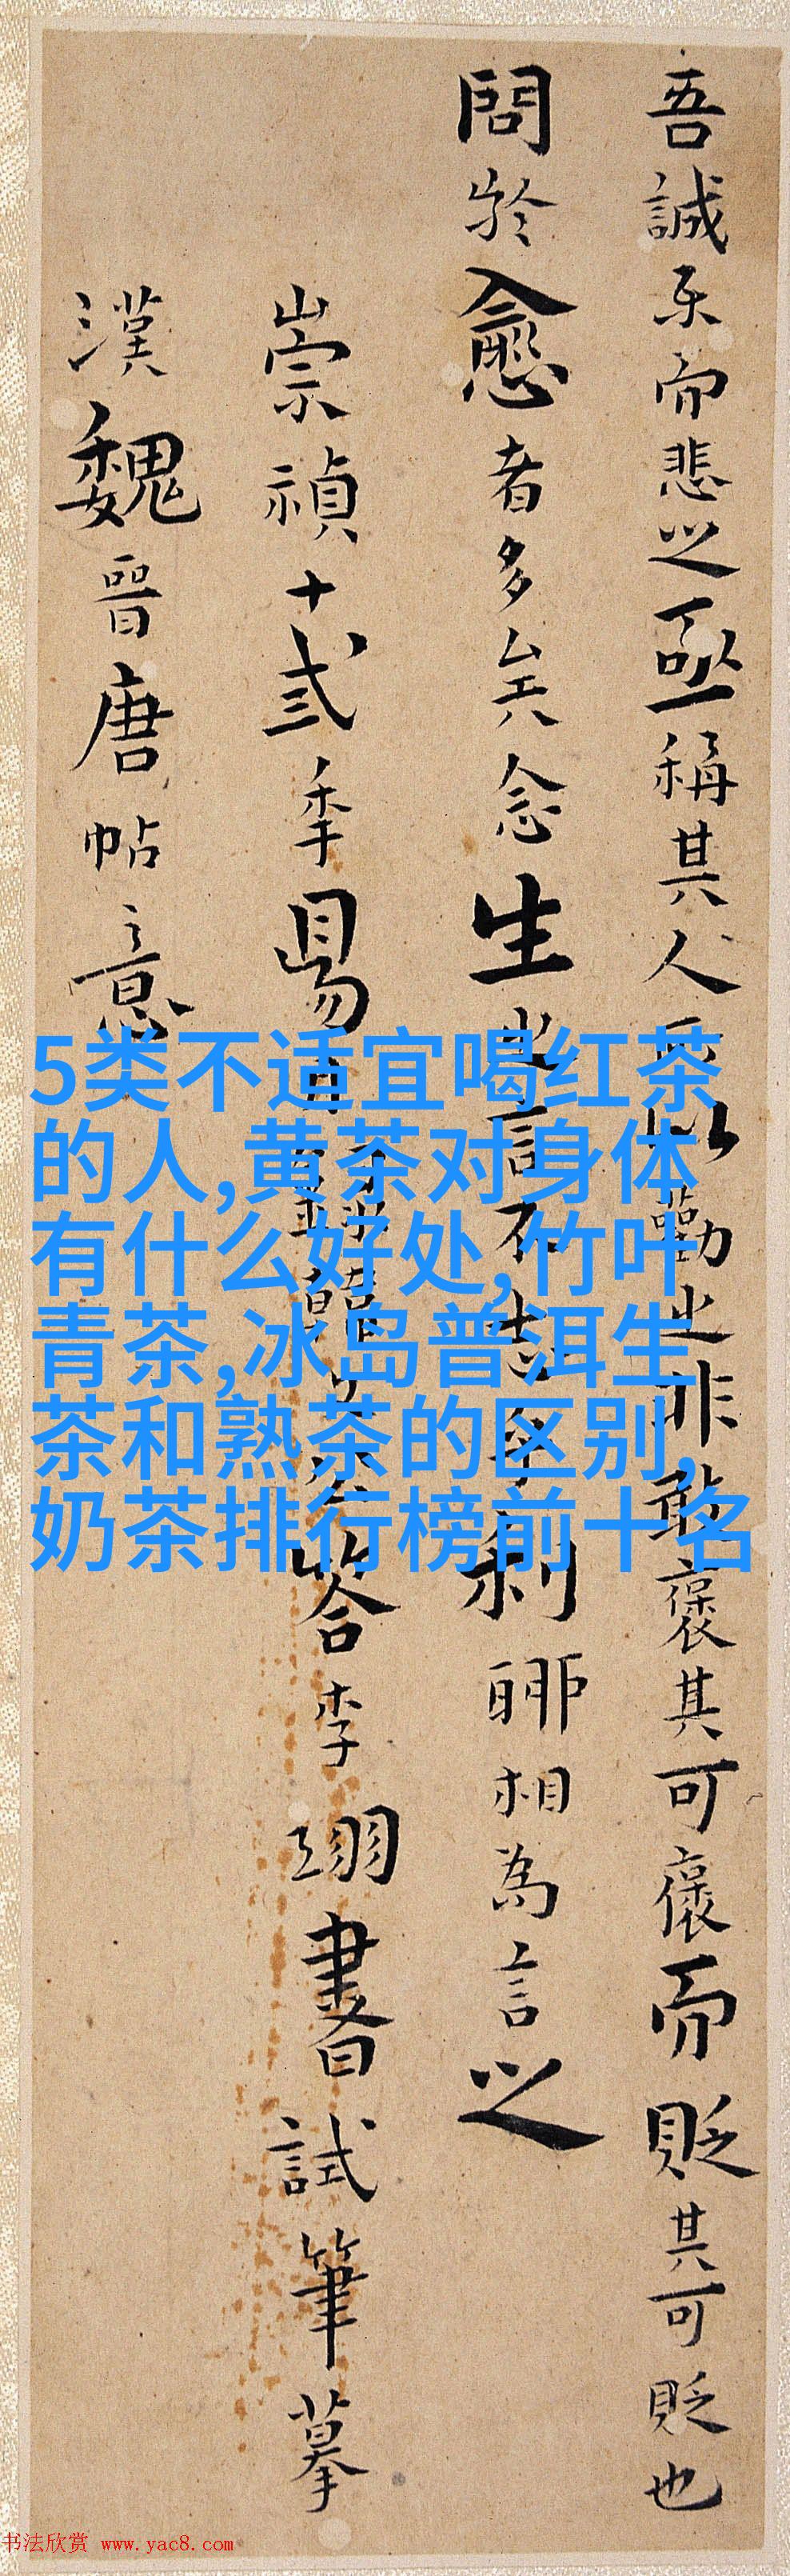 吾誠樂而悲之亟稱其人所以勸之非敢褒其可褒而貶其可貶也
問於愈者多矣念生之言不志乎利聊相為言之
崇禎十弍季昜韓文公答李翊書試筆摹
漢魏晉唐帖意
5类不适宜喝红茶
的人,黄茶对身体
有什么好处,竹叶
青茶,冰岛普洱生
茶和熟茶的区别,
奶茶排行榜前十名
书法欣赏 www.yac8.com